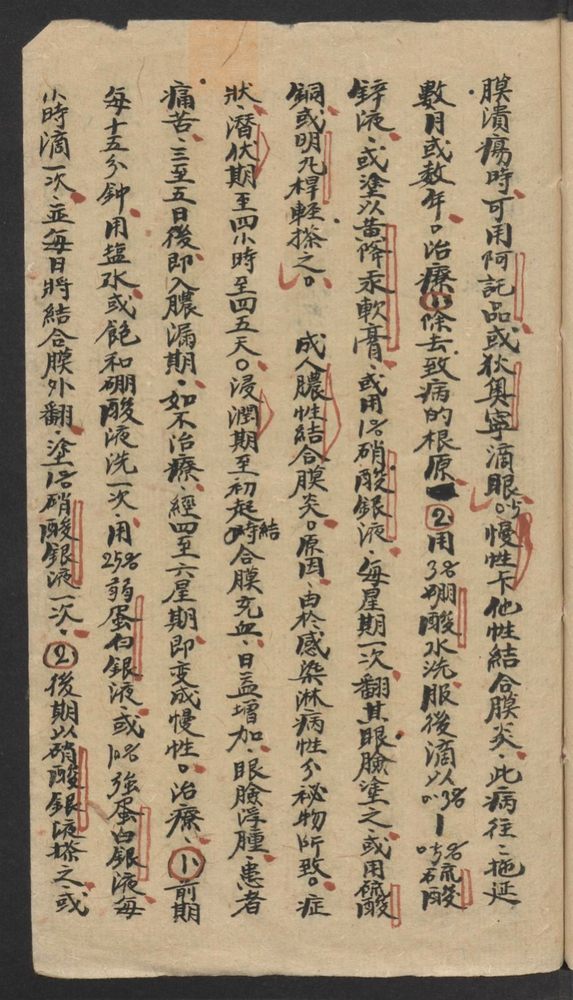 膜潰瘍時可用阿託品或狄奧寧滴眼。慢性卡他性結合膜炎、此病往〻拖延
數月或數年。治療(1)除去致病的根原(2)用3%硼酸水洗眼後滴以0.3%—0.5%硫酸
鋅液、或塗以黄降汞軟膏、或用1%硝酸銀液、每星期一次、翻其眼臉塗之、或用硫酸
銅或明凡桿輕搽之。 成人膿性結合膜炎。原因、由於感染淋病性分祕物所致。症
狀、潛伏期至四小時至四五天。浸潤期至初起時結合膜充血、日益增加、眼臉浮腫、患者
痛苦、三至五日後即入膿漏期、如不治療、經四至六星期即变成慢性。治療、(1)前期
每十五分鈡用塩水或飽和硼酸液洗一次、用25%弱蛋白銀液、或10%强蛋白銀液每
小時滴一次、並每日將結合膜外翻、塗1%硝酸銀液一次、(2)後期以硝酸銀液搽之、或